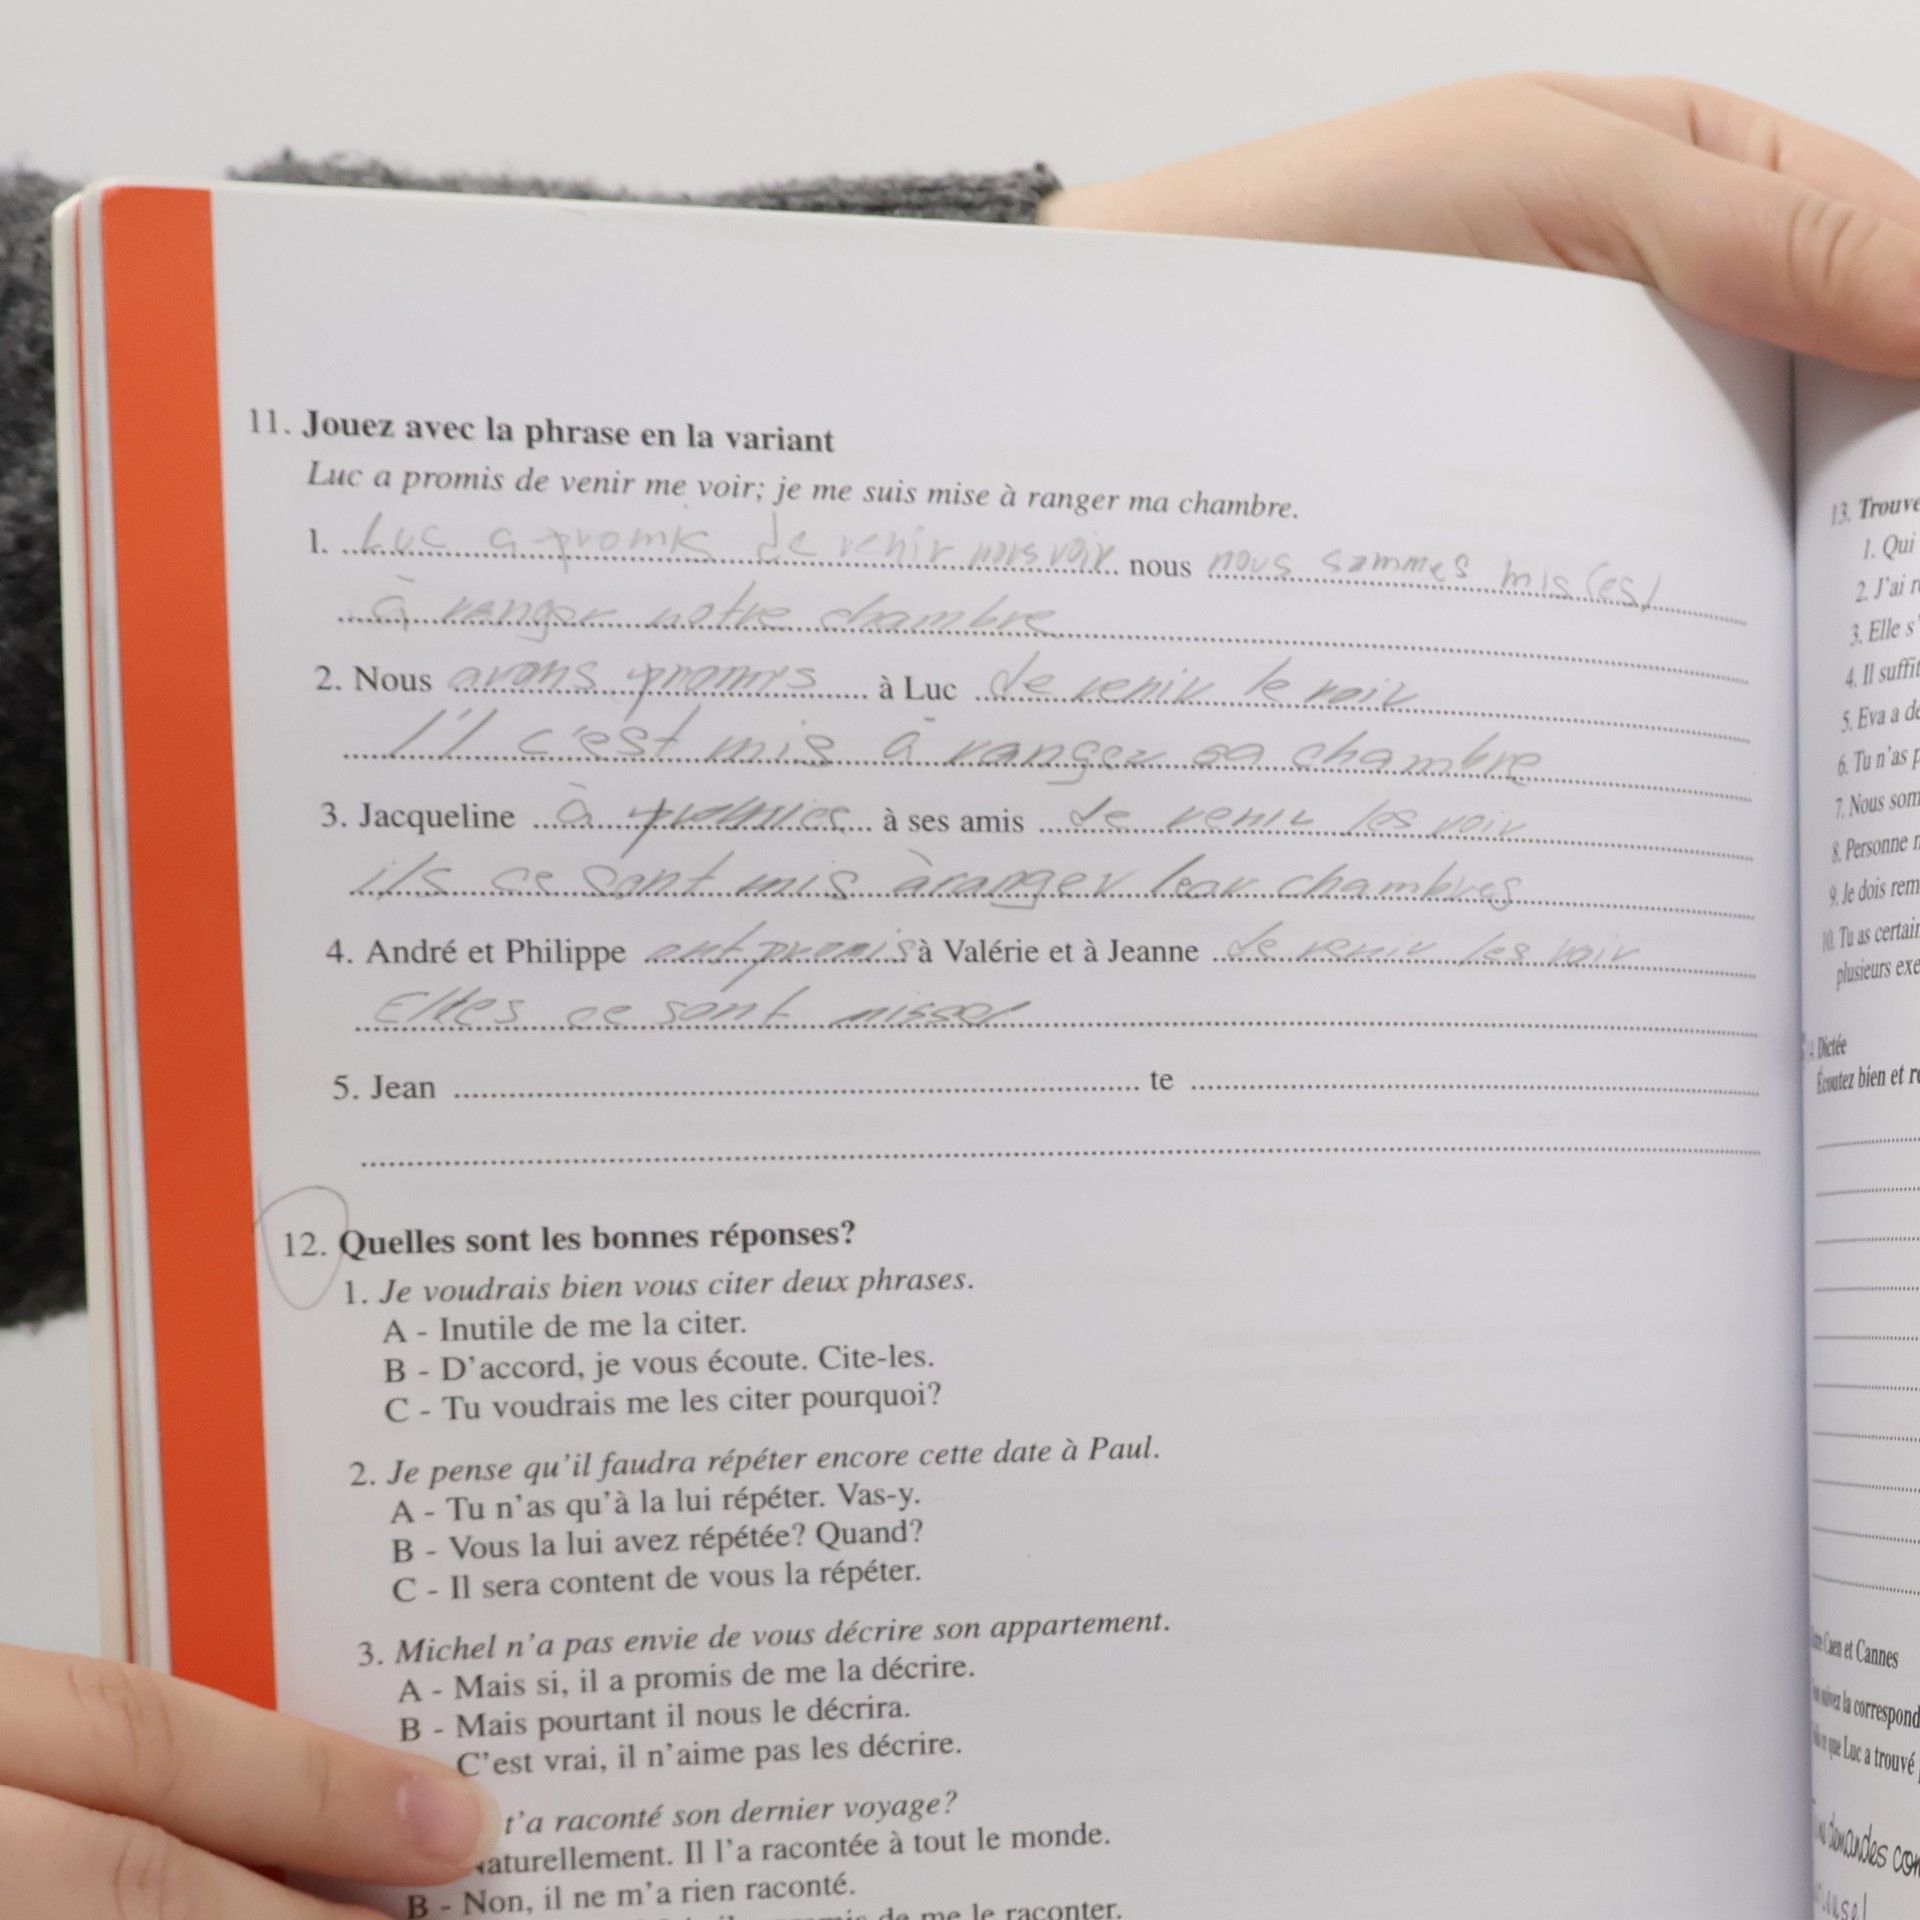 11. Jouez avec la phrase en la variant
Luc a promis de venir me voir; je me suis mise à ranger ma chambre.
1. Luc a promis de venir nous voir nous nous sommes mis(es)
à ranger notre chambre
2. Nous avons promis à Luc de venir le voir
Il c'est mis à ranger sa chambre
3. Jacqueline à à ses amis de venir les voir
ils ce sont mis à ranger leur chambres
4. André et Philippe ont promis à Valérie et à Jeanne de venir les voir
Elles ce sont
5. Jean te
12. Quelles sont les bonnes réponses?
1. Je voudrais bien vous citer deux phrases.
A - Inutile de me la citer.
B - D'accord, je vous écoute. Cite-les.
C - Tu voudrais me les citer pourquoi?
2. Je pense qu'il faudra répéter encore cette date à Paul.
A - Tu n'as qu'à la lui répéter. Vas-y.
B - Vous la lui avez répétée? Quand?
C - Il sera content de vous la répéter.
3. Michel n'a pas envie de vous décrire son appartement.
A - Mais si, il a promis de me la décrire.
B - Mais pourtant il nous le décrira.
C'est vrai, il n'aime pas les décrire.
t'a raconté son dernier voyage?
aturellement. Il l'a racontée à tout le monde.
B - Non, il ne m'a rien raconté.
de me le raconter.
13. Trouve
1. Qui
2. J'ai
3. Elle s'
4. Il suffit
5. Eva a de
6. Tu n'as p
7. Nous som
8. Personne
9. Je dois rem
10. Tu as certain
plusieurs exe
Dictée
Écoutez bien et
Caen et Cannes
la correspond
que Luc a trouvé
demandes com